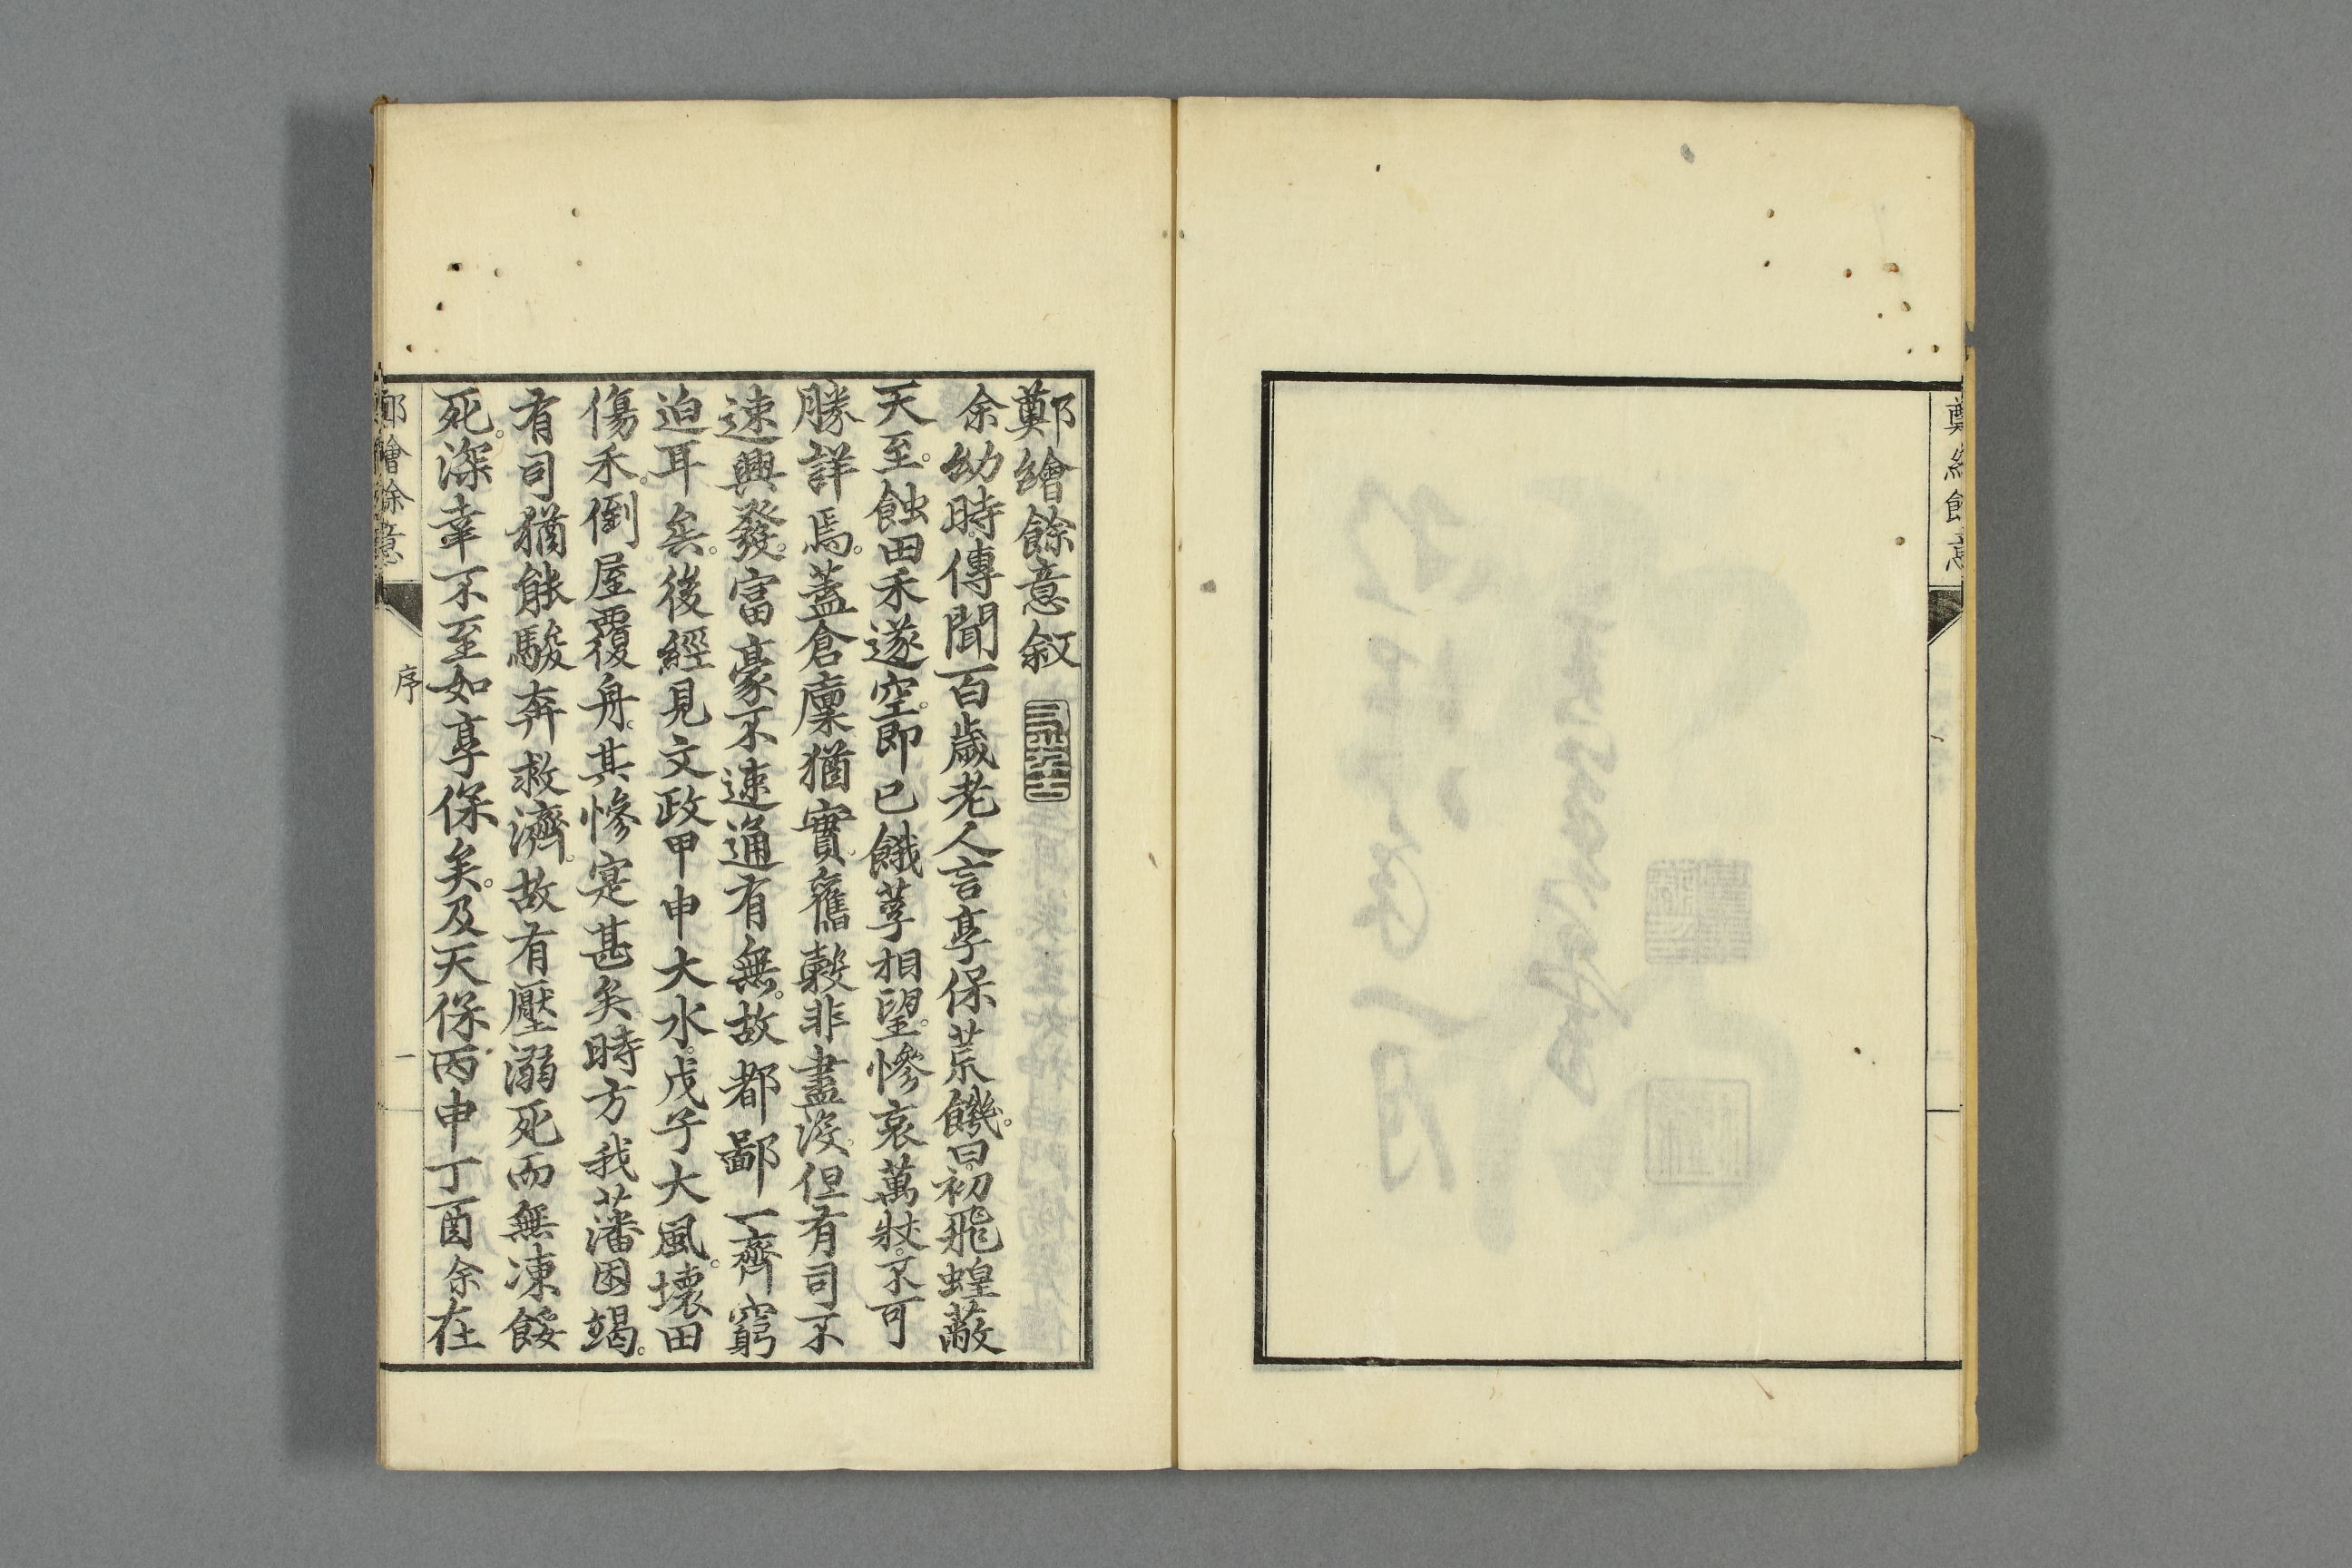 鄭繪餘意
鄭繪餘意敘
余幼時。傳聞百歲老人言享保荒饑。曰。初飛蝗蔽
天至。蝕田禾遂空。即已餓莩相望。慘哀萬狀。不可
勝詳焉。蓋倉廩猶實。舊穀非盡没。但有司不
速興發。富豪不速通有無。故都鄙一齊窮
迫耳矣。後經見文政甲申大水。戊子大風。壞田
傷禾。倒屋覆舟。其慘寔甚矣。時方我藩困竭。
有司猶能駿奔救濟。故有壓溺死而無凍餒
死。深幸不至如享保矣。及天保丙申丁酉余在
鄭繪餘意
序
一